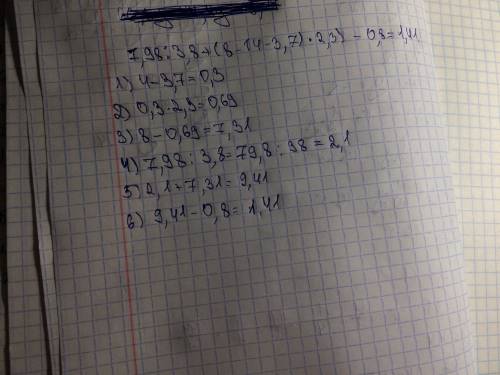 7,98:3,8+(8-(4-3,7)·2,3)-0,8=1,41
1) 4-3,7=0,3
2) 0,3·2,3=0,69
3) 8-0,69=7,31
4) 7,98:3,8=79,8:98=2,1
5) 2,1+7,31=9,41
6) 9,41-0,8=1,41